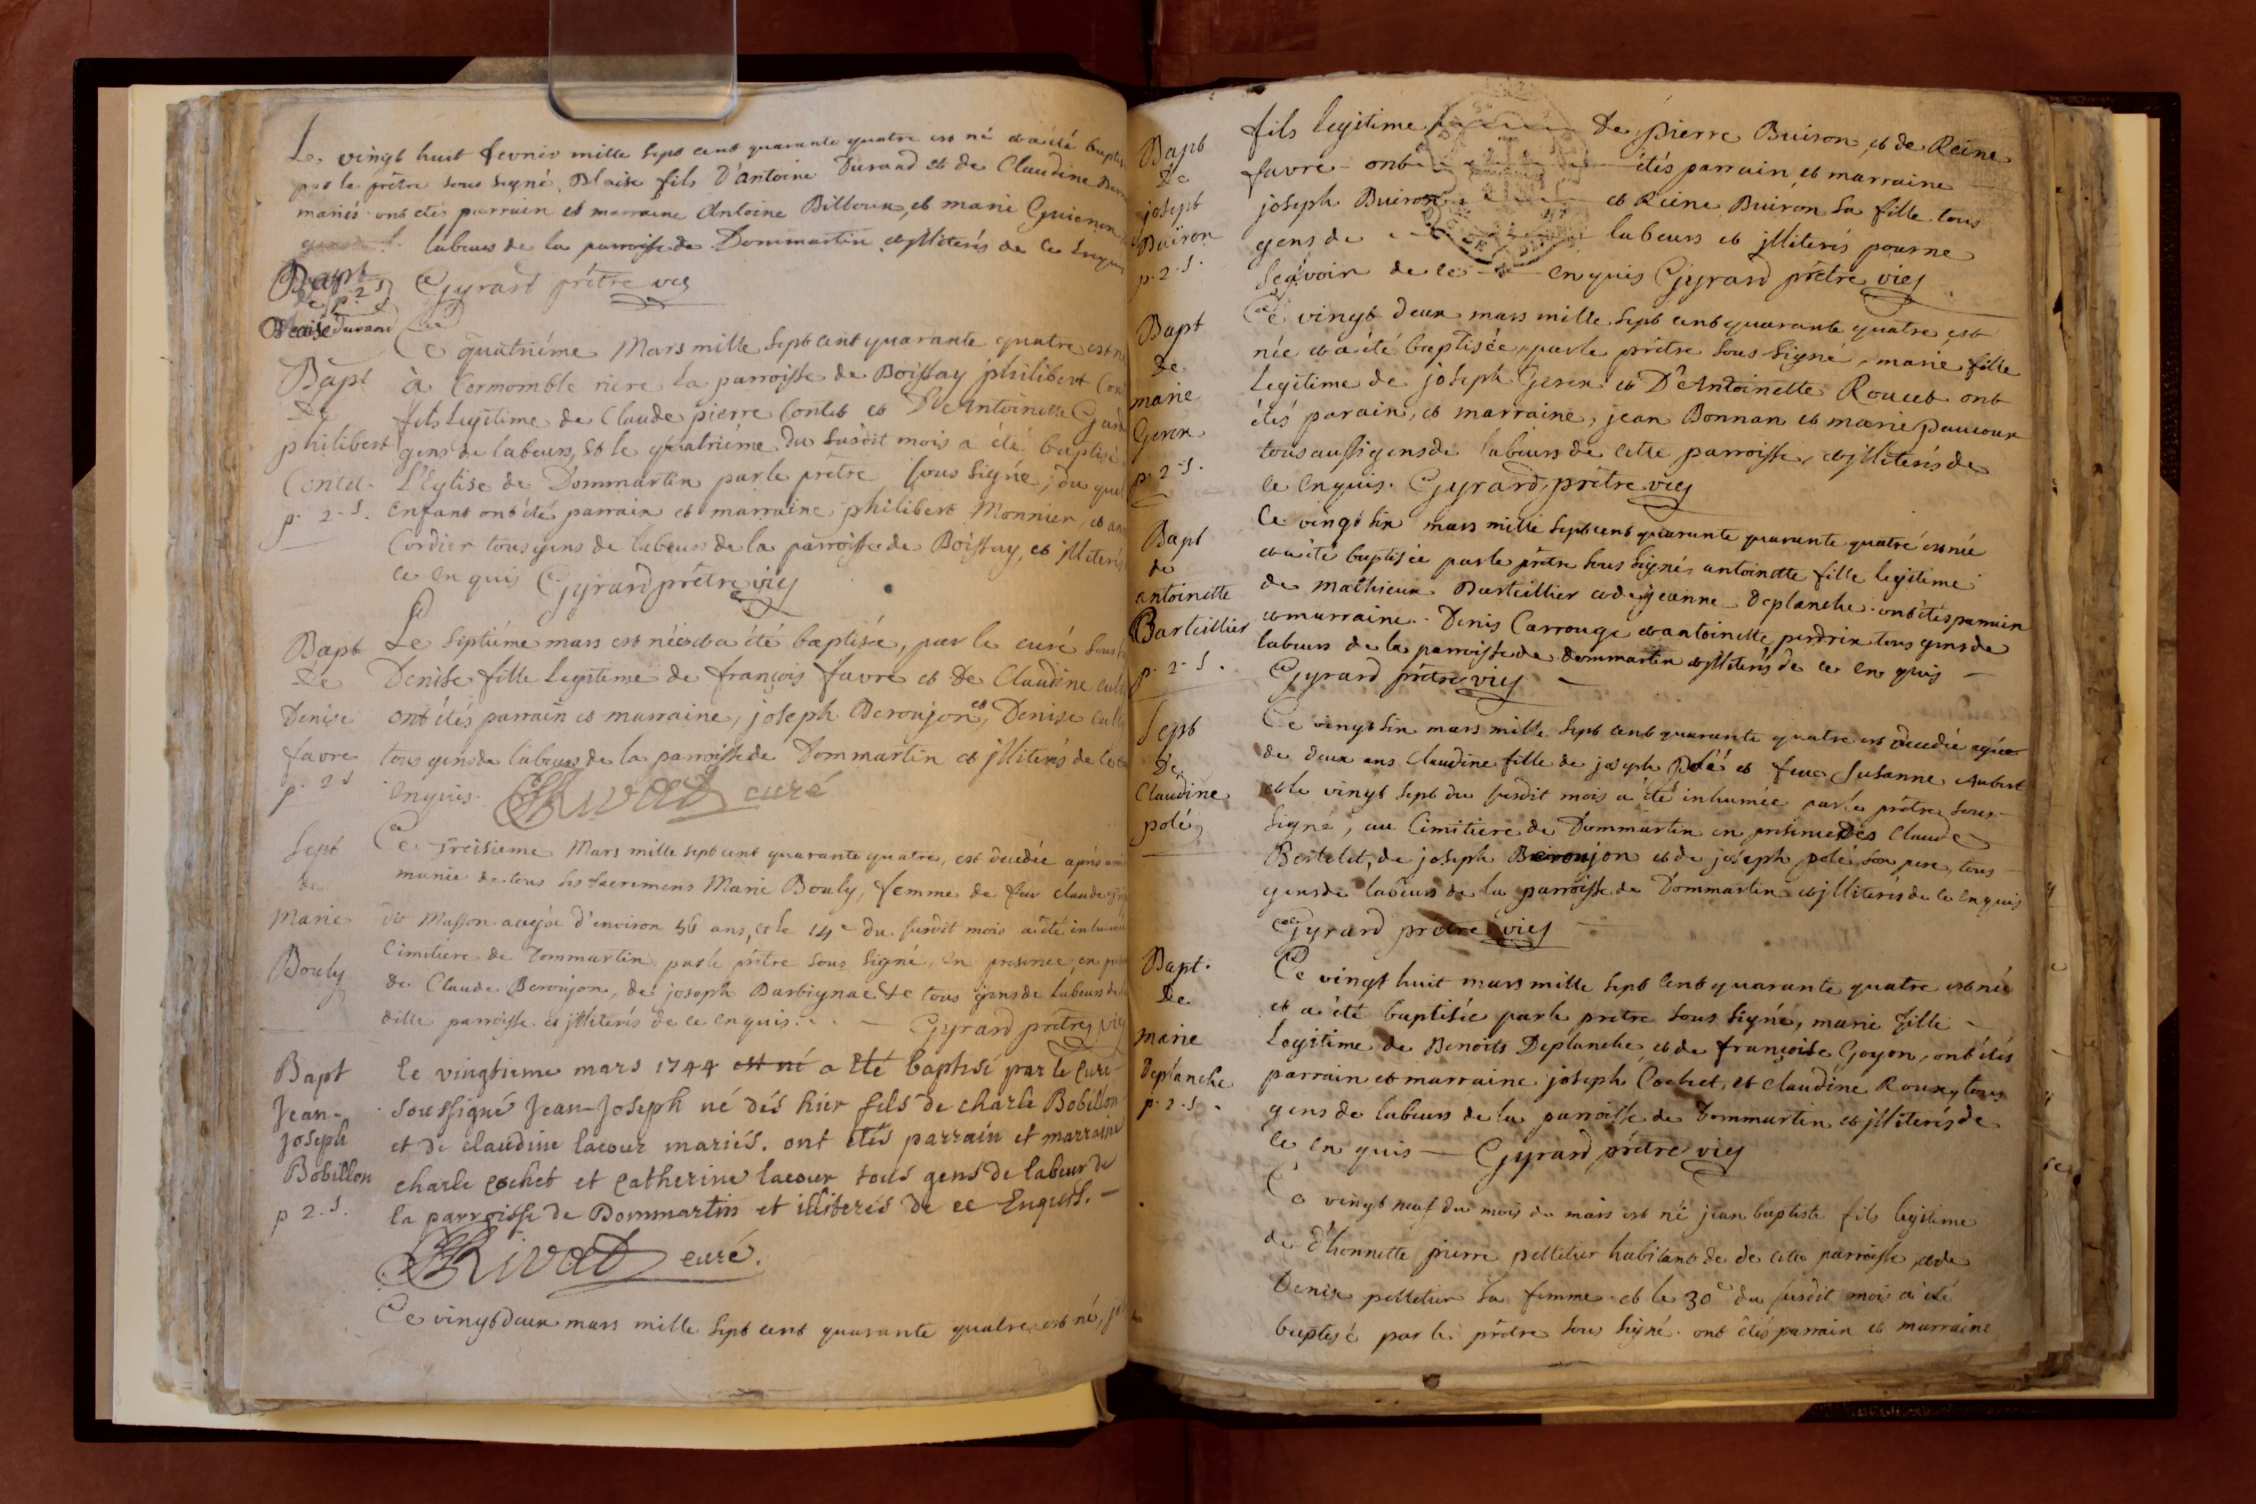 Le vingt huit fevrier mille sept cent quarante quatre est né et a été
par le prêtre sous signé, Blaise fils D'antoine Durand et de Claudine
mariés. ont étés parrain et marraine Antoine Billoux, et marie Guienon
labeurs de la parroisse de Dommartin et jlliterés de ce
Gyrard prêtre vic
Bapt
de p. 2 s
Blaise Durand
Ce quatriéme Mars mille sept cent quarante quatre est
à Cormomble riere la parroisse de Boissay philibert
fils legitime de Claude pierre Contet et D'Antoinette
gens de labeurs, et le quatriéme du susdit mois a été baptisé
L'Eglise de Dommartin par le prêtre sous signé, du quel
enfant ont été parrain et marraine philibert Monnier, et
Cordier tous gens de labeurs de la parroisse de Boissay, et jlliterés
ce enquis Gyrard prêtre vic
Bapt
de
philibert
Contet.
p. 2 s.
Le septiéme mars est née et a été baptisée, par le curé
Denise fille legitime de françois favre et de Claudine
ont étés parrain et marraine, joseph Beroujon et Denise
tous gens de labeurs de la parroisse de Dommartin et jlliterés de
enquis. Rivat curé
Bapt
De
Denise
favre
p. 2 s
Ce Treisieme Mars mille sept cent quarante quatre, est decedée aprés
munie de tous ses sacremens Marie Bouly, femme de feu claude
dit Masson aagée d'environ 56 ans, et le 14e du susdit mois a été
Cimitiere de Dommartin par le prêtre sous signé, en presence
de Claude Beroujon, de joseph Barbignac &c tous gens de labeurs
ditte parroisse et jlliterés de ce enquis. Gyrard prêtre vic
Sept
de
Marie
Bouly
le vingtieme mars 1744 est né a été baptisé par le curé
soussigné Jean-Joseph né dés hier fils de charle Bobillon
et de claudine lacour mariés. ont étés parrain et marraine
charle cochet et catherine lacour tous gens de labeur de
la parroisse de Dommartin et illiterés de ce Enquis.
Rivat curé.
Bapt
Jean-
Joseph
Bobillon
p 2. s.
Ce vingt deux mars mille sept cent quarante quatre est né,
fils legitime de pierre Buiron, et de Reine
favre ont étés parrain, et marraine
joseph Buiron et Reine Buiron sa fille tous
gens de labeurs et jlliterés pour ne
sçavoir de ce enquis Gyrard prêtre vic
Bapt
De
joseph
Buiron
p. 2 s.
Ce vingt deux mars mille sept cent quarante quatre est
née et a été baptisée, par le prêtre sous signé, marie fille
legitime de joseph Geren et D'Antoinette Roucet ont
étés parain, et marraine, jean Bonnan et marie paucoux
tous aussi gens de labeurs de cette parroisse, et jlliterés de
ce enquis. Gyrard, prêtre vic
Bapt
De
marie
Geren
p. 2 s.
Ce vingt six mars mille sept cent quarante quarante quatre est née
et a été baptisée par le prêtre sous signé, antoinette fille legitime
de mathieux Barteillier et de jeanne Deplanche. ont étés parrain
et marraine. Denis Carrouge et antoinette perdrix tous gens de
labeurs de la parroisse de Dommartin et jlliterés de ce enquis
Gyrard prêtre vic
Bapt
de
antoinette
Barteillier
p. 2 s.
Ce vingt six mars mille sept cent quarante quatre est decedée agée
de deux ans Claudine fille de joseph Polé et feue Susanne Aubert
et le vingt sept du susdit mois a été inhumée par le prêtre sous
signé, au Cimitiere de Dommartin en presence Des Claude
Bertelet, de joseph Beroujon et de joseph polé son pere, tous
gens de labeurs de la parroisse de Dommartin et jlliterés de ce enquis
Gyrard prêtre vic
Sept
De
Claudine
polé
Ce vingt huit mars mille sept cent quarante quatre est née
et a été baptisée par le prêtre sous signé, marie fille
Legitime de Benoits Deplanche et de françoise Goyon, ont étés
parrain et marraine joseph Cochet, et claudine Roux, tous
gens de labeurs de la parroisse de Dommartin et jlliterés de
ce enquis Gyrard prêtre vic
Bapt.
De
marie
Deplanche
p. 2. s.
Ce vingt neuf du mois de mars est né jean baptiste fils legitime
de d'honnette pierre pelletier habitant de de cette parroisse et de
Denise pelletier sa femme et le 30e du susdit mois a été
baptisé par le prêtre sous signé. ont étés parrain et marraine